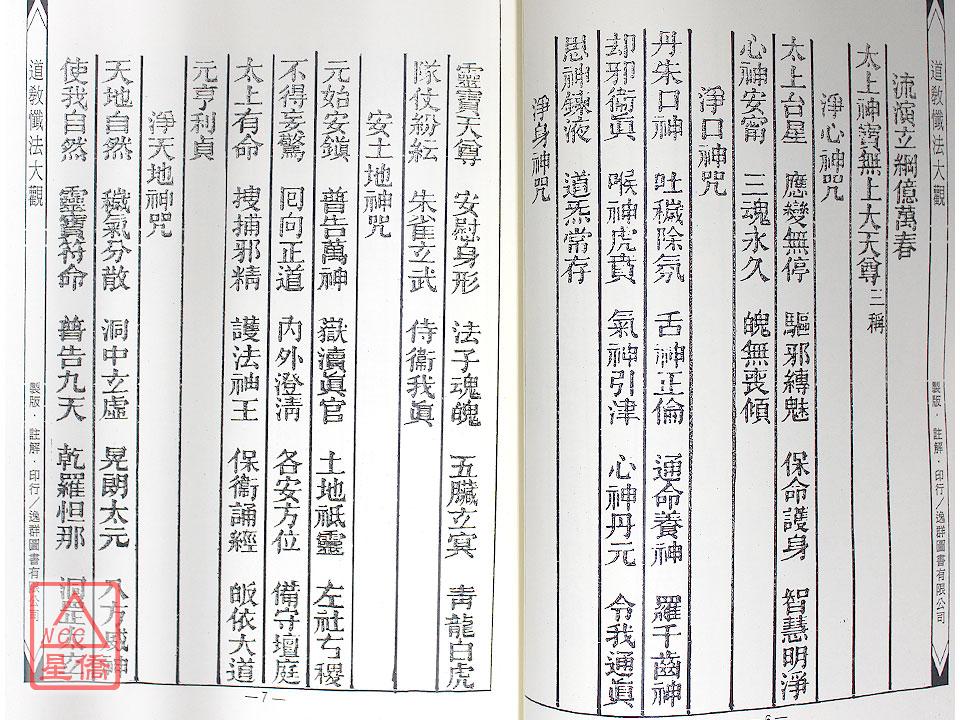 道教懺法大觀
製版．註解．印行／逸群圖書有限公司
流演立綱億萬春
太上神寶無上大天尊三稱
淨心神咒
太上台星 應變無停 驅邪縛魅 保命護身 智慧明淨
心神安甯 三魂永久 魄無喪傾
淨口神咒
丹朱口神 吐穢除氛 舌神正倫 通命養神 羅千齒神
却邪衛眞 喉神虎賁 氣神引津 心神丹元 令我通眞
思神鍊液 道炁常存
淨身神咒
6—
靈寶天尊 安慰身形 法子魂魄 五臟立冥 青龍白虎
隊仗紛紜 朱雀立武 侍衞我眞
安土地神咒
元始安鎮 普告萬神 嶽瀆眞官 土地祇靈 左社右稷
不得妄驚 回向正道 內外澄清 各安方位 備守壇庭
太上有命 搜捕邪精 護法神王 保衞誦經 皈依大道
元亨利貞
淨天地神咒
天地自然 穢氣分散 洞中立虛 晃朗太元 八方威神
使我自然 靈寶符命 普告九天 乾羅怛那 洞罡太玄
道教懺法大觀
製版．註解．印行／逸群圖書有限公司
—7—
NCC
星僑